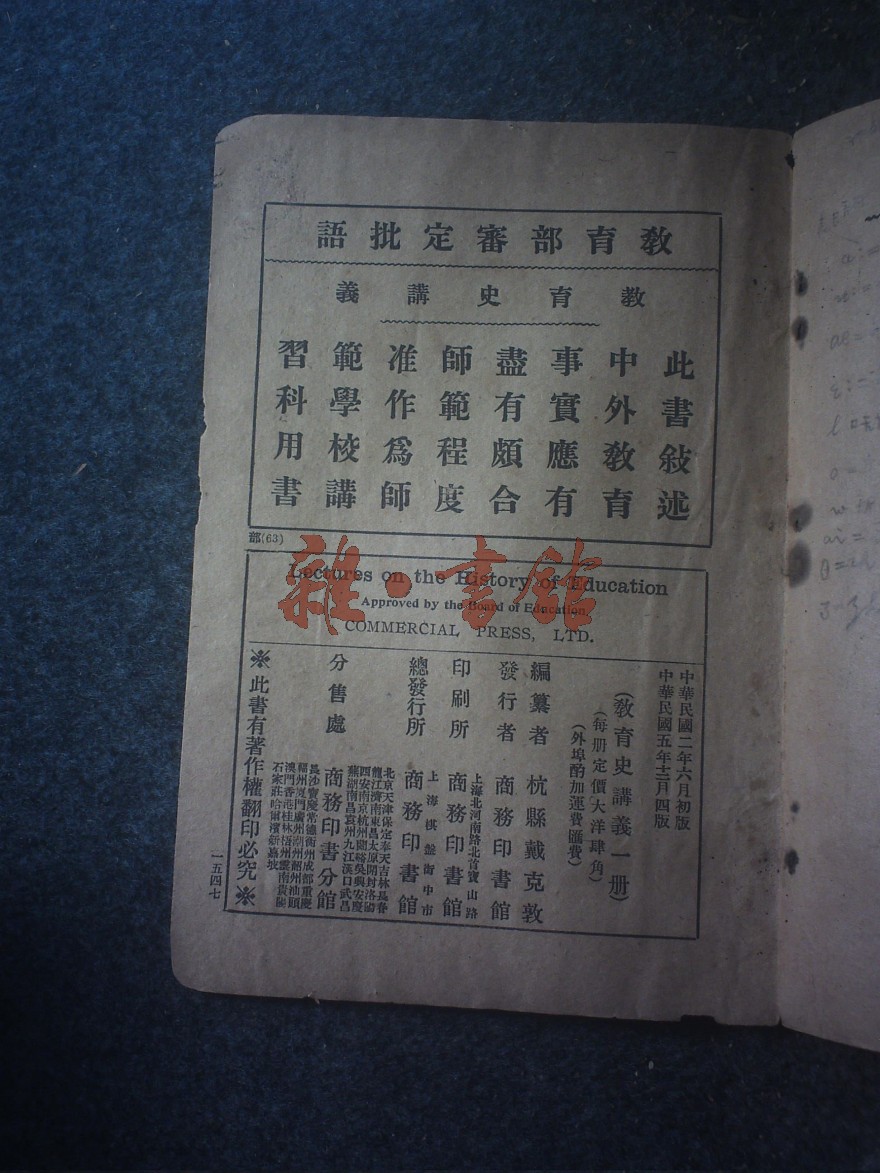 教育部審定批語
教育史講義
此書敍述
中外教育
事實應有
盡有頗合
師範程度
准作爲師
範學校講
習科用書
部(63)
Lectures on the History of Education
Approved by the Board of Education,
COMMERCIAL PRESS, LTD.
中華民國二年六月初版
中華民國五年十二月四版
(教育史講義一册)
(每册定價大洋肆角)
(外埠酌加運費匯費)
編纂者 杭縣戴克敦
發行者 商務印書館
上海北河南路北首寶山路
印刷所 商務印書館
上海棋盤街中市
總發行所 商務印書館
北京天津保定奉天吉林長春
龍江濟南東昌太原開封洛陽
西安南京杭州蘭谿吳興安慶
蕪湖南昌袁州九江漢口武昌
分售處 商務印書分館
長沙寶慶常德衡州成都重慶
福州廈門廣州潮州韶州汕頭
澳門香港桂林梧州雲南貴陽
石家莊哈爾濱新嘉坡
※此書有著作權翻印必究※
一五四七
雜·書館